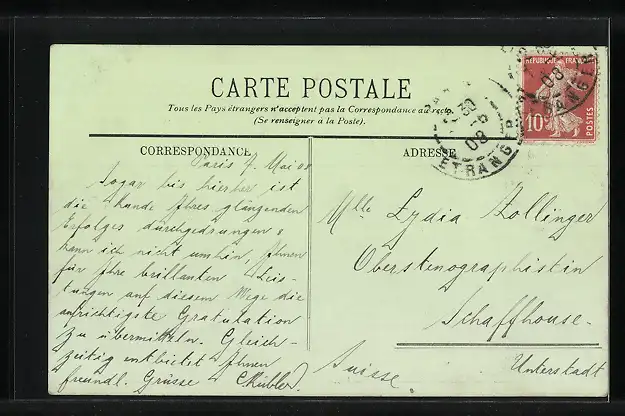 CARTE POSTALE
Tous les Pays étrangers n'acceptent pas la Correspondance au recto.
(Se renseigner à la Poste).
CORRESPONDANCE
ADRESSE
REPUBLIQUE FRANÇAISE
10c
POSTES
30
08
ETRANGER
Paris 7. Mai 08
Sogar bis hierher ist
die Kunde Ihres glänzenden
Erfolges durchgedrungen &
kann ich nicht umhin, Ihnen
für Ihre brillanten Leis-
tungen auf diesem Wege die
aufrichtigste Gratulation
zu übermitteln. Gleich-
zeitig entbietet Ihnen
freundl. Grüsse CKübler.
Mlle Lydia Zollinger
Oberstenographistin
Schaffhouse.
Unterstadt
Suisse.